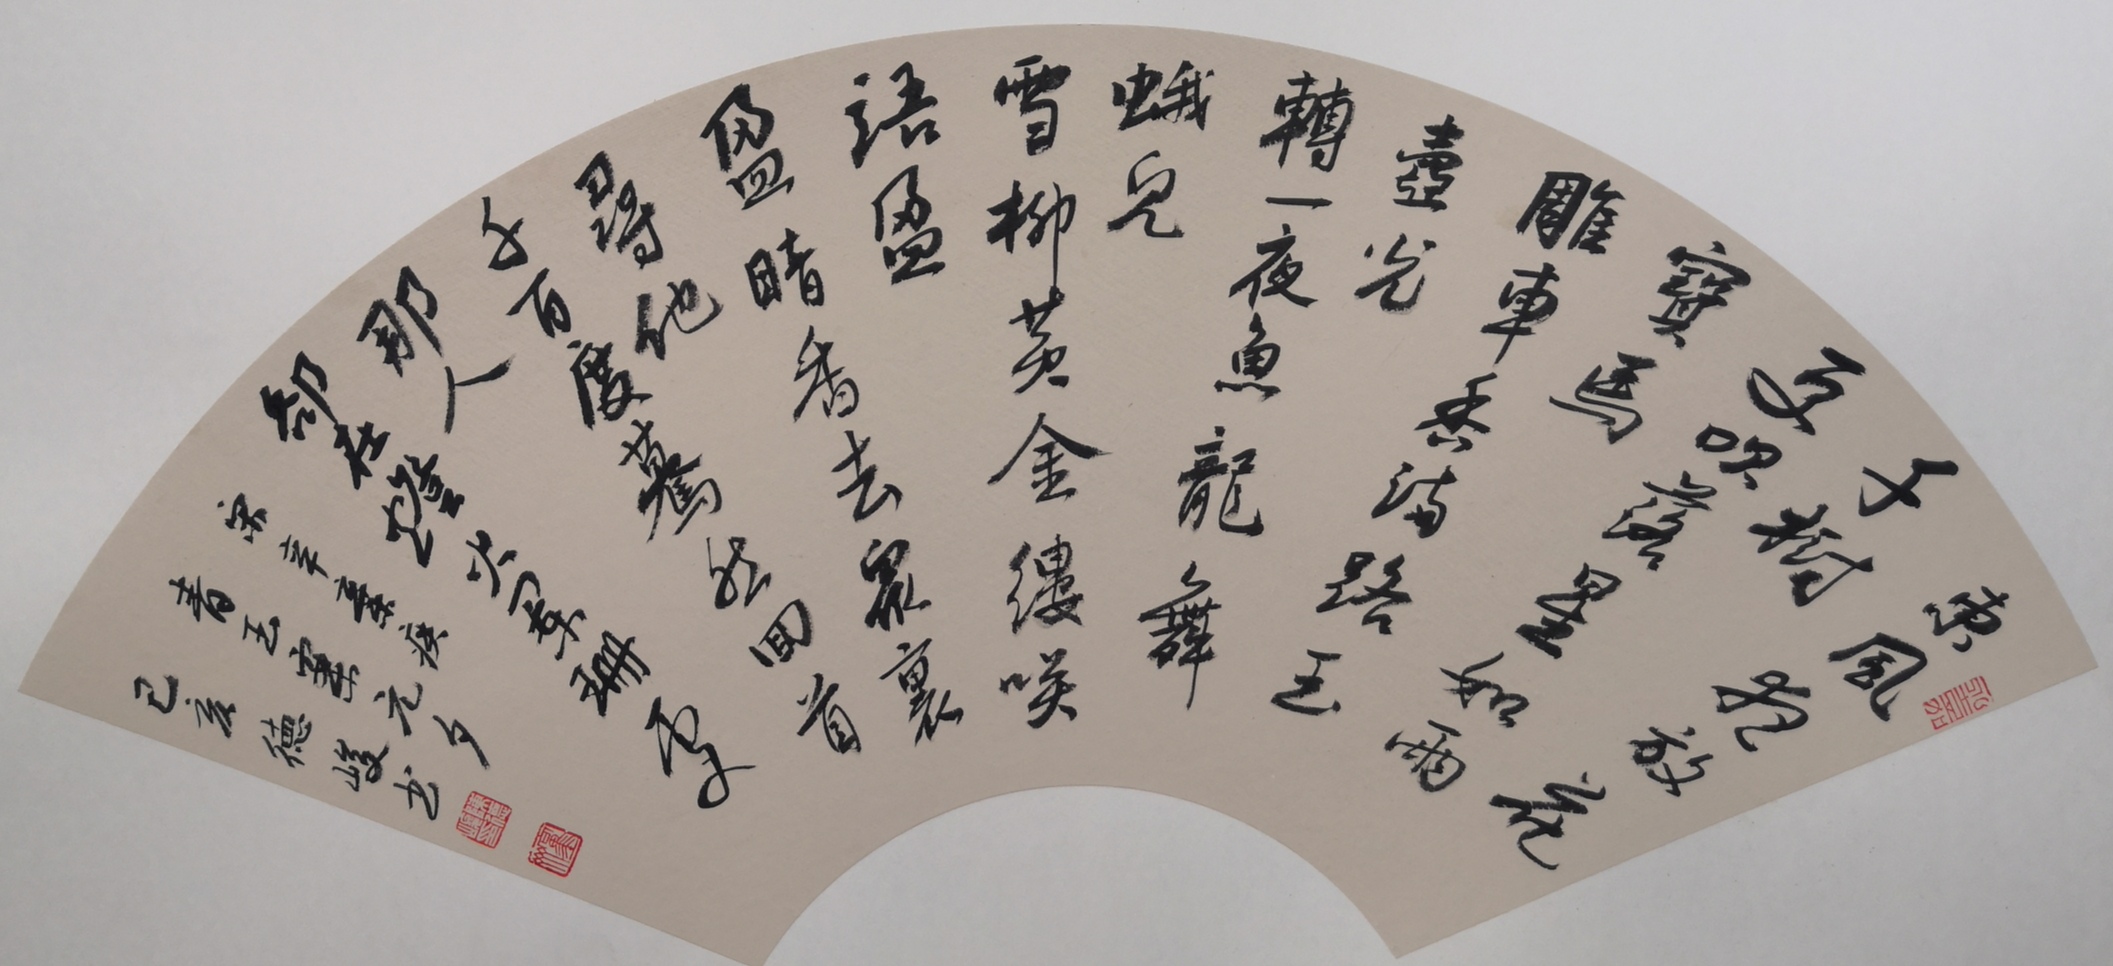 東風夜放花
千樹
更吹落星如雨
寶馬
雕車香滿路玉
壺光
轉一夜魚龍舞
蛾兒
雪柳黃金縷咲
語盈
盈暗香去眾裏
尋他
千百度驀然回首
那人
却在燈火闌珊處
宋辛棄疾
青玉案元夕
己亥德峻书